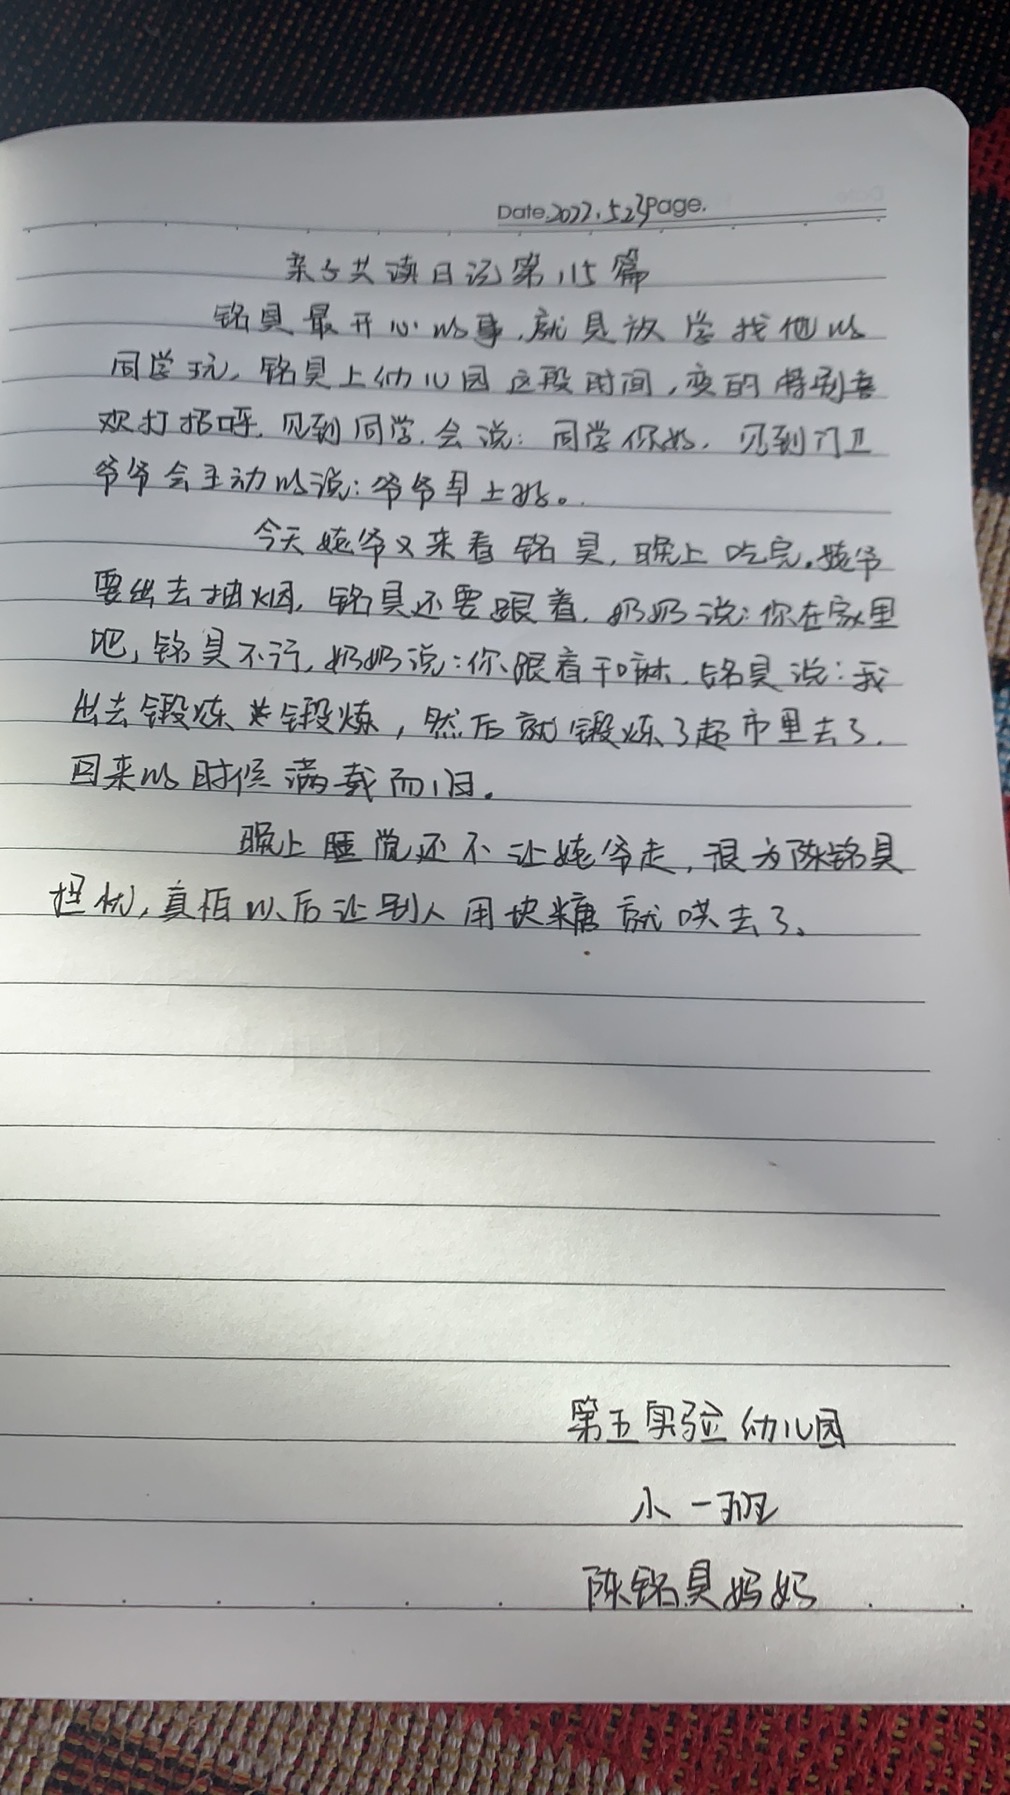 Date.2022.5.23Page.
亲子共读日记第115篇
铭昊最开心的事,就是放学找他的
同学玩,铭昊上幼儿园这段时间,变的特别喜
欢打招呼.见到同学.会说:同学你好.见到门卫
爷爷会主动的说:爷爷早上好。
今天姥爷又来看铭昊,晚上吃完.姥爷
要出去抽烟,铭昊还要跟着.奶奶说:你在家里
吧,铭昊不行,奶奶说:你跟着干嘛.铭昊说:我
出去锻炼锻炼,然后就锻炼了超市里去了.
回来的时候满载而归.
晚上睡觉还不让姥爷走,很为陈铭昊
担忧,真怕以后让别人用块糖就哄去了.
第五实验幼儿园
小一班
陈铭昊妈妈